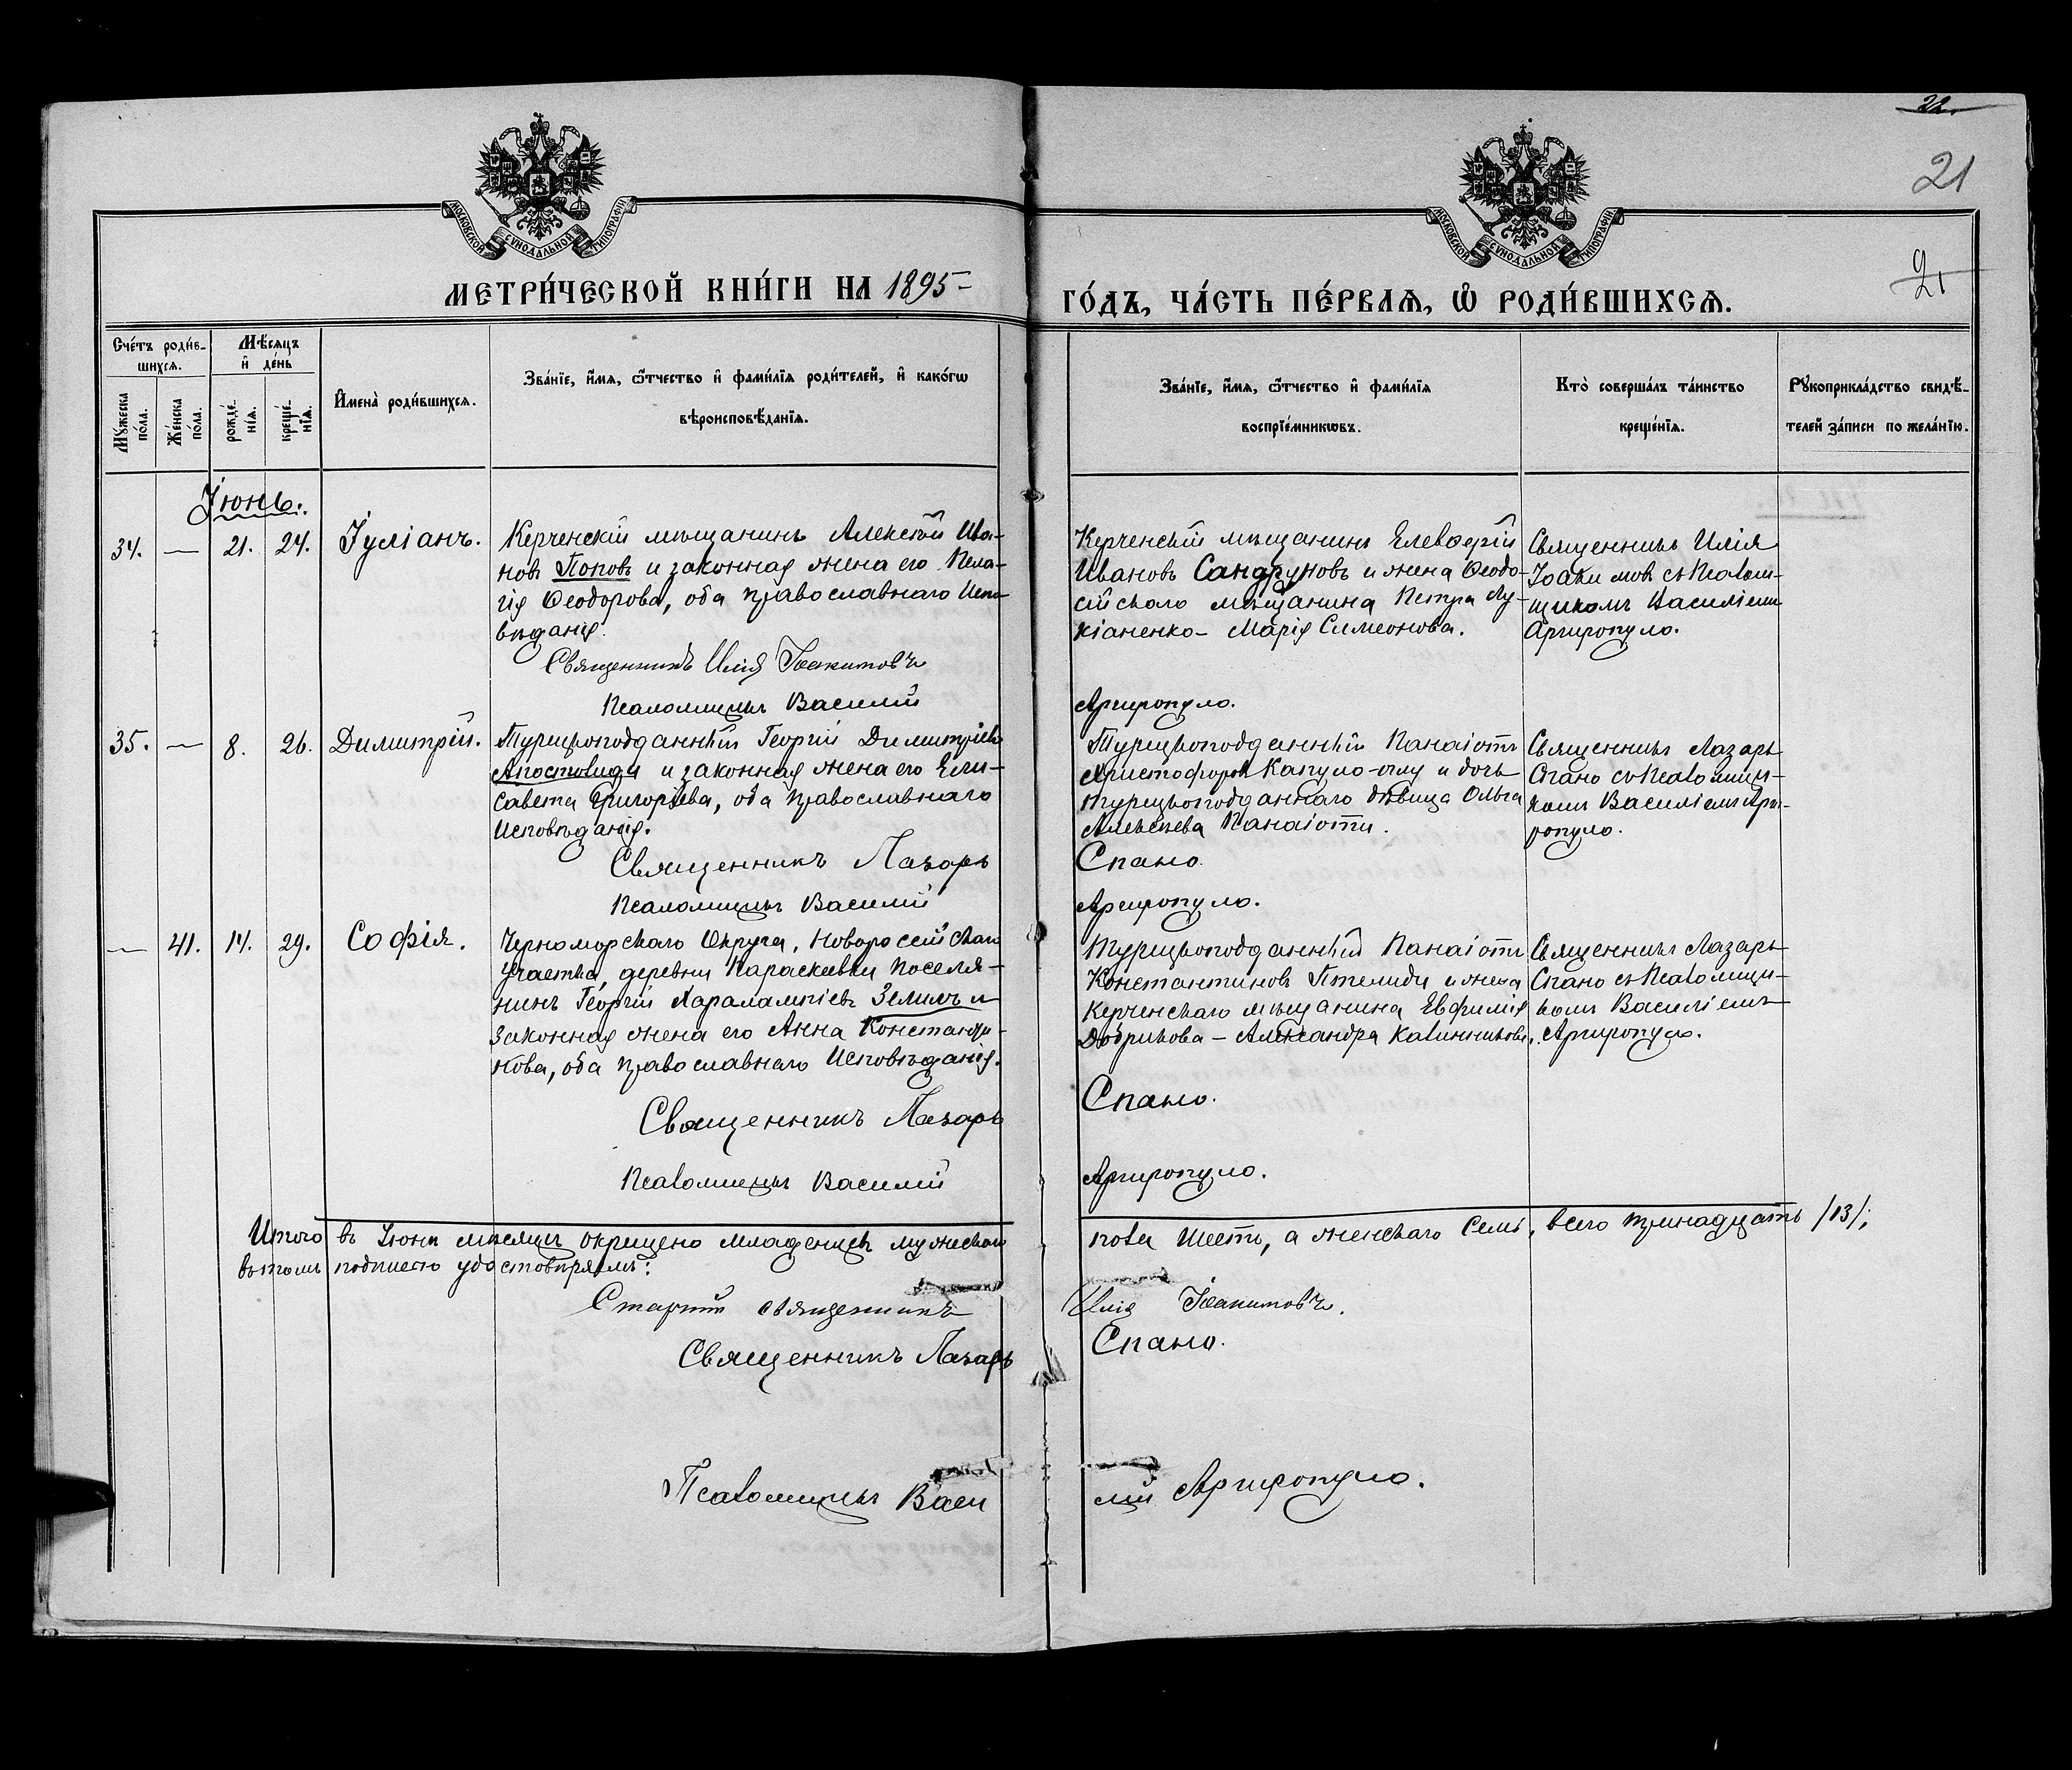 22.
21
21
МОСКОВСКОЙ СУНОДАЛЬНОЙ ТИПОГРАФІИ
МОСКОВСКОЙ СУНОДАЛЬНОЙ ТИПОГРАФІИ
МЕТРИ́ЧЕСКОЙ КНИ́ГИ НА 1895 –
ГО́ДЪ, ЧА́СТЬ ПЕ́РВАѦ, Ѡ РОДИ́ВШИХСѦ.
Сче́тъ роди́в-
шихсѧ.
Мѣ́сѧцъ
и҆ де́нь
Мꙋ́жеска
по́ла.
Же́нска
по́ла.
рожде́-
нїѧ.
креще́-
нїѧ.
И҆мена̀ роди́вшихсѧ.
Зва́нїе, и҆́мѧ, ѻ҆́тчество и҆ фами́лїѧ роди́телей, и҆ како́гѡ
вѣроисповѣ́данїѧ.
Зва́нїе, и҆́мѧ, ѻ҆́тчество и҆ фами́лїѧ
воспрїе́мникѡвъ.
Кто̀ соверша́лъ та́инство
креще́нїѧ.
Рꙋкоприкла́дство свидѣ́-
телей за́писи по жела́нїю.
Іюнь.
34. — 21. 24. Іуліанъ.
Керченскій мѣщанинъ Алексѣй Ива-
новъ Поповъ и законная жена его Пела-
гія Ѳеодорова, оба православнаго Испо-
вѣданія.
Священникъ Илія Іоакимовъ
Псаломщикъ Василій
Керченскій мѣщанинъ Елевѳерій
Ивановъ Сандруновъ и жена Ѳеодо-
сійскаго мѣщанина Петра Лу-
кіаненко – Марія Симеонова.
Аргиропуло.
Священникъ Илія
Іоакимовъ съ Псалом-
щикомъ Василіемъ
Аргиропуло.
35. — 8. 26. Димитрій.
Турецкоподданный Георгій Димитріевъ
Апостолиди и законная жена его Ели-
савета Григорьева, оба православнаго
Исповѣданія.
Священникъ Лазарь
Псаломщикъ Василій
Турецкоподданный Панаіотъ
Христофоровъ Капуло-оглу и дочь
турецкоподданнаго дѣвица Ольга
Алексѣева Панаіоти.
Спано.
Аргиропуло.
Священникъ Лазарь
Спано съ Псаломщи-
комъ Василіемъ Арги-
ропуло.
— 41. 14. 29. Софія.
Черноморскаго Округа, Новороссійскаго
участка, деревни Параскевки поселя-
нинъ Георгій Харалампіевъ Зелилъ и
законная жена его Анна Константи-
нова, оба православнаго Исповѣданія.
Священникъ Лазарь
Псаломщикъ Василій
Турецкоподданный Панаіотъ
Константиновъ Птелиди и жена
Керченскаго мѣщанина Евфимія
Добрикова – Александра Калинникова.
Спано.
Аргиропуло.
Священникъ Лазарь
Спано съ Псаломщи-
комъ Василіемъ
Аргиропуло.
Итого въ Іюнѣ мѣсяцѣ окрещено младенцевъ мужескаго
пола шесть, а женскаго семь, всего тринадцать /13/;
въ томъ подписью удостовѣряемъ:
Старшій священникъ
Илія Іоакимовъ.
Священникъ Лазарь
Спано.
Псаломщикъ Васи
лій Аргиропуло.